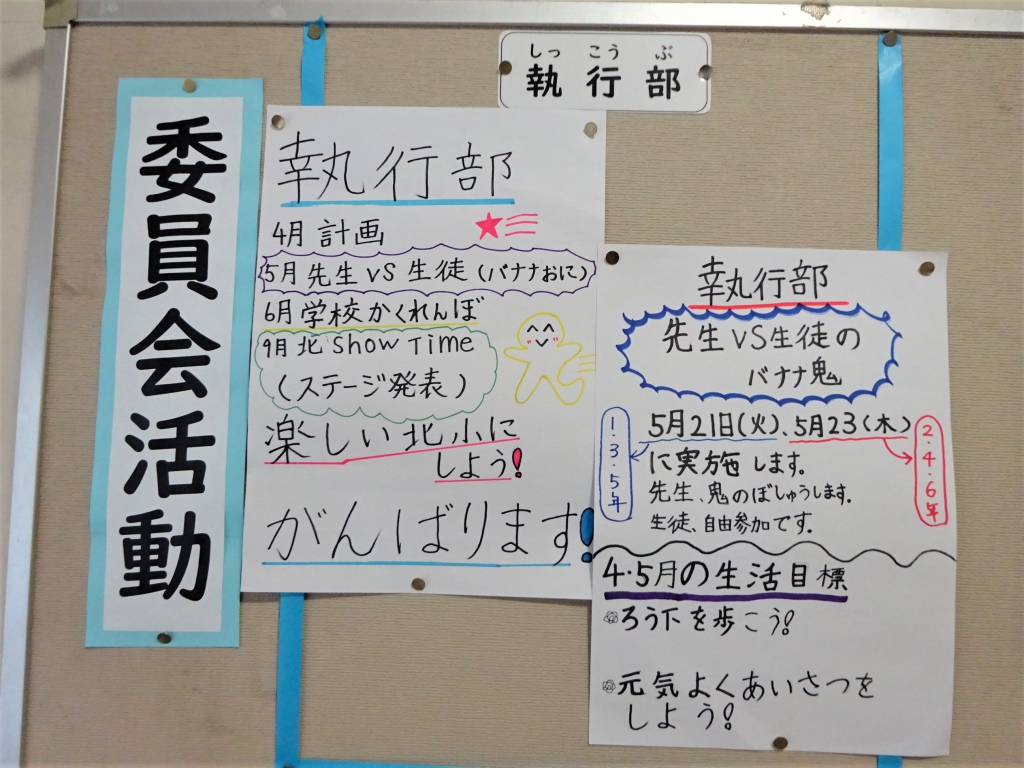 委員会活動
しっこうぶ
執行部
執行部
4月 計画
5月 先生 VS 生徒 (バナナおに)
6月 学校かくれんぼ
9月 北 Show Time
(ステージ発表)
楽しい北小に
しよう!
がんばります!
執行部
先生 VS 生徒の
バナナ鬼
5月21日(火)、5月23(木)
1・3・5年
2・4・6年
に実施します。
先生、鬼のぼしゅうします。
生徒、自由参加です。
4・5月の生活目標
ろう下を歩こう!
元気よくあいさつを
しよう!